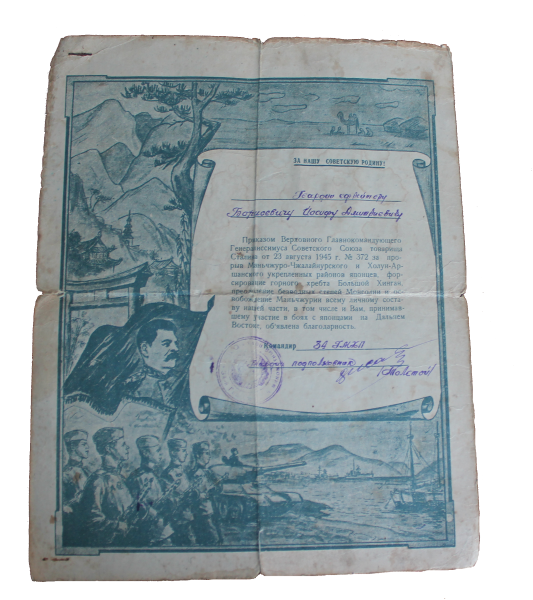 ЗА НАШУ СОВЕТСКУЮ РОДИНУ!
Гвардии ефрейтору
Иосифу Дмитриевичу
Приказом Верховного Главнокомандующего
Генералиссимуса Советского Союза товарища
Сталина от 23 августа 1945 г. № 372 за про-
рыв Маньчжуро-Чжалайнурского и Холун-Ар-
шанского укрепленных районов японцев, фор-
сирование горного хребта Большой Хинган,
преодоление безводных степей Монголии и ос-
вобождение Маньчжурии всему личному соста-
ву нашей части, в том числе и Вам, принимав-
шему участие в боях с японцами на Дальнем
Востоке, объявлена благодарность.
Командир
Гвардии подполковник